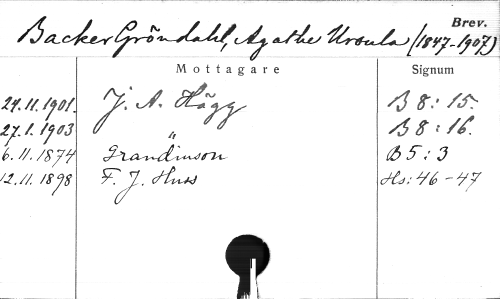 Brev.
Backer Gröndahl, Agathe Ursula (1847-1907)
Mottagare Signum
24.11.1901. J. A. Hägg B 8: 15.
27.1.1903 " B 8: 16.
6.11.1874 Grandinson B 5: 3
12.11.1898 F. J. Huss Hs: 46-47